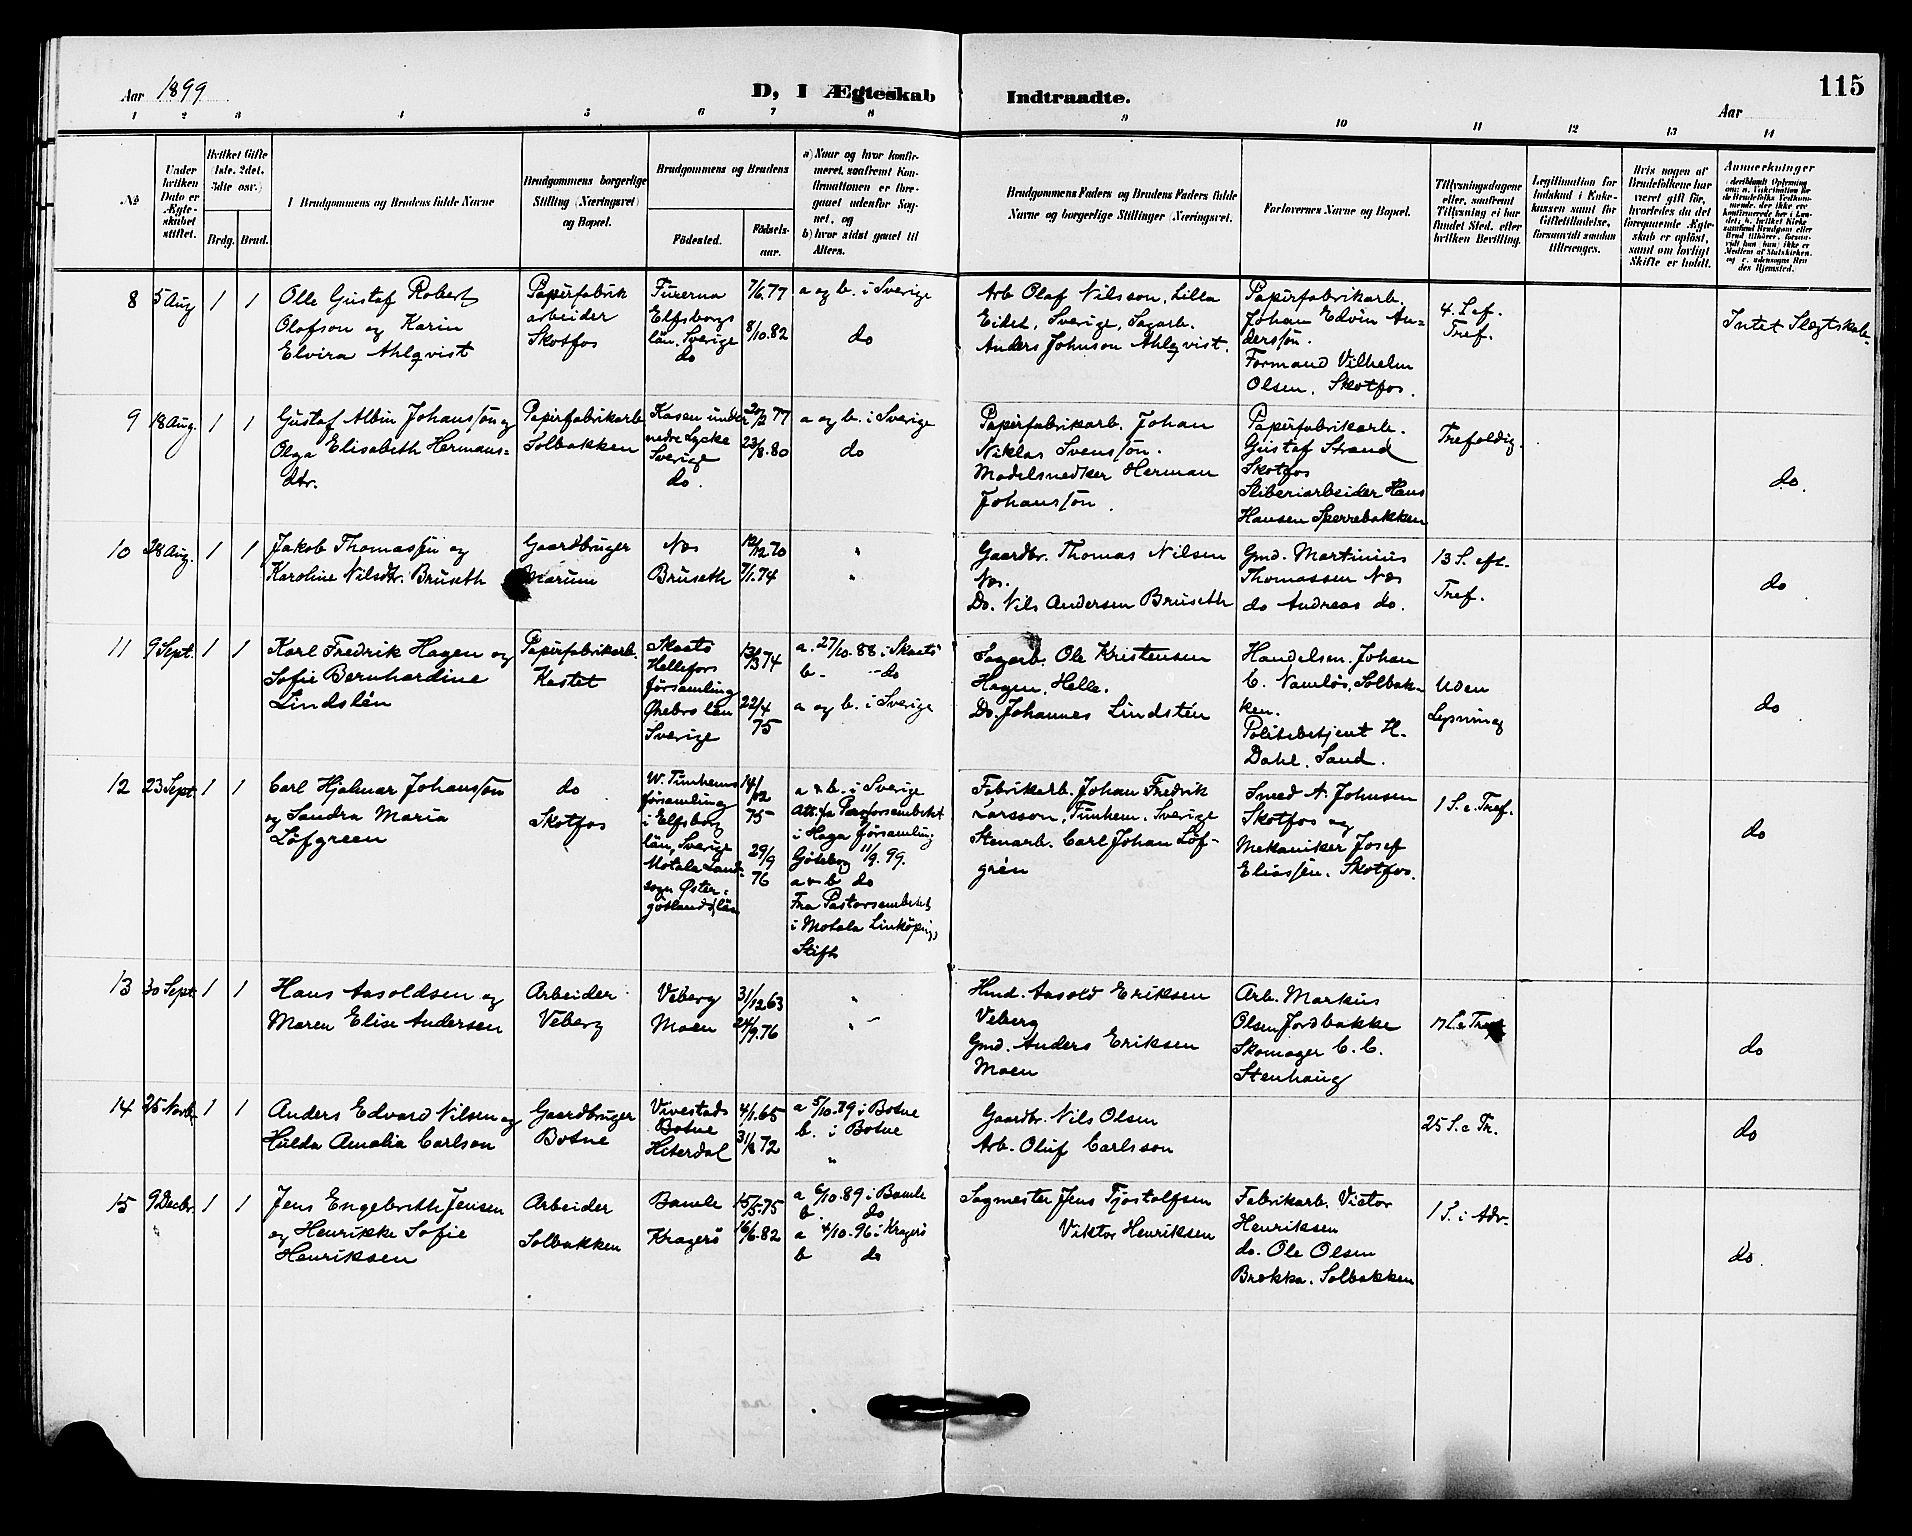 Aar 1899
D, I Ægteskab Indtraadte.
115
Aar
1 2 3 4 5 6 7 8 9 10 11 12 13 14
No
Under hvilken Dato er Ægteskabet stiftet.
Hvilket Gifte (1ste, 2det, 3dte osv.)
Brdg. Brud.
I Brudgommens og Brudens fulde Navne
Brudgommens borgerlige Stilling (Næringsvei) og Bopæl.
Brudgommens og Brudens
Födested. Födselsaar.
a) Naar og hvor konfirmeret, saafremt Konfirmationen er foregaaet udenfor Sognet, og
b) hvor sidst gaaet til Alters.
Brudgommens Faders og Brudens Faders fulde Navne og borgerlige Stillinger (Næringsvei).
Forlovernes Navne og Bopæl.
Tillysningsdagene eller, saafremt Tillysning ei har fundet Sted, efter hvilken Bevilling.
Legitimation for Indskud i Enkekassen samt for Giftetilladelse, forsaavidt saadan tiltrænges.
Hvis nogen af Brudefolkene har været gift för, hvorledes da det foregaaende Ægteskab er oplöst, samt om lovligt Skifte er holdt.
Anmerkninger
8 5 Aug 1 1
Olle Gustaf Robert
Olafson og Karin
Elvira Ahlqvist
Papirfabrik
arbeider
Skotfos
Fuxerna
Elfsborgs
län. Sverige
do
7/6.77
8/10.82
a og b. i Sverige
do
Arb Olaf Nilsson, Lilla
Eidet, Sverige, Sagarb.
Anders Johnson Ahlqvist.
Papirfabrikarb.
Johan Edvin An-
dersson.
Formand Vilhelm
Olsen, Skotfos.
4. S ef.
Tref.
Intet Slægtskab
9 18 Aug. 1 1
Gustaf Albin Johansson og
Olga Elisabeth Hermans-
dtr.
Papirfabrikarb
Solbakken
Kasen under
nedre Lycke
Sverige
do.
20/2 77
23/8.80
a og b. i Sverige
do
Papirfabrikarb. Johan
Niklas Svensson.
Modelsnedker Herman
Johansson.
Papirfabrikarb.
Gustaf Strand
Skotfos
Sliberiarbeider Hans
Hansen Sperrebakken
Trefoldig.
do.
10 28 Aug. 1 1
Jakob Thomassen og
Karoline Nilsdtr. Bruseth
Gaardbruger
Marum
Næs
Bruseth
12/12 70
7/1.74
"
"
Gaardbr. Thomas Nilsen
Næs.
Do. Nils Andersen Bruseth
Gmd. Martinius
Thomassen Næs
do Andreas do.
13 S. eft.
Tref.
do
11 9 Sept. 1 1
Karl Fredrik Hagen og
Sofie Bernhardine
Lindstén
Papirfabrikarb.
Kastet
Skaatö
Hellefors
församling
Ørebro län
Sverige
13/3 74
22/4
75
a. 27/10. 88 i Skaatö
b. - do
a og b. i Sverige
Sagarb. Ole Kristensen
Hagen, Helle.
Do. Johannes Lindstén
Handelsm. Johan
C. Namløs, Solbak-
ken.
Politibetjent H.
Dahl, Sand.
Uden
Lysning
do
12 23 Sept 1 1
Carl Hjalmar Johansson
og Sandra Maria
Löfgreen
do
Skotfos
W. Tunhems
församling
i Elfsborg
län, Sverige
Motala Land-
sogn Øster-
götlands län
14/12
75
29/9
76
a & b. i Sverige
Att. fra Pastorsembetet
i Haga församling
Göteborg 11/9. 99.
a & b do
Fra Pastorsembetet
i Motala Linköpings
Stift
Fabrikarb. Johan Fredrik
Larsson, Tunhem. Sverige
Stenarb. Carl Johan Löf-
grén
Smed A. Johnsen
Skotfos og
Mekaniker Josef
Eliassen. Skotfos.
1 S. e Tref.
do
13 30 Sept. 1 1
Hans Aasoldsen og
Maren Elise Andersen
Arbeider
Veberg
Veberg
Moen
31/12 63
24/9.76
"
"
Hmd. Aasold Eriksen
Veberg
Gmd. Anders Eriksen
Moen
Arb. Markus
Olsen Jordbakke
Skomager C. C.
Stenhaug
do
14 25 Novb. 1 1
Anders Edvard Nilsen og
Hulda Amalia Carlson
Gaardbruger
Botne
Vivestads
Botne
Hiterdal
4/1.65
31/8 72
a 5/10.79 i Botne
b. i Botne
"
Gaardbr. Nils Olsen
Arb. Oluf Carlsson
25 S. e Tr.
do
15 9 Decbr. 1 1
Jens Engebreth Jensen
og Henrikke Sofie
Henriksen
Arbeider
Solbakken
Bamle
Kragerö
15/5.75
16/6.82
a 6/10.89 i Bamle
b. do
a 4/10.96 i Kragerö
b do
Sagmester Jens Tjostolfsen
Viktor Henriksen
Fabrikarb. Victor
Henriksen
do. Ole Olsen
Brekka. Solbakken
1 S. i Adv.
do